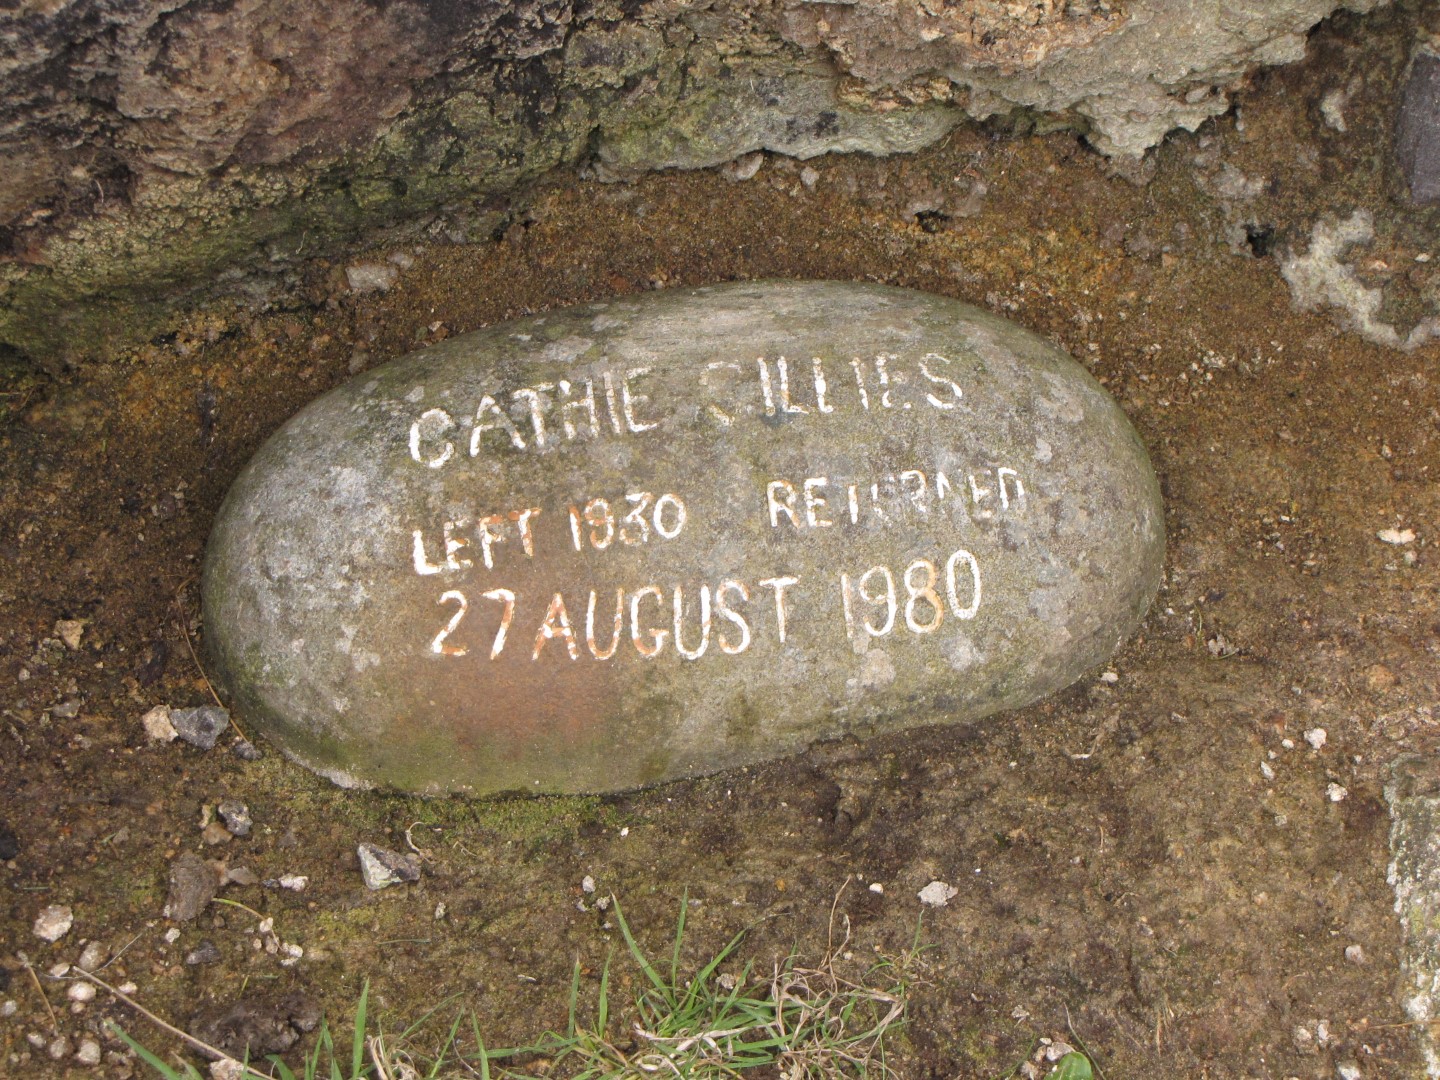 CATHIE GILLIES
LEFT 1930 RETURNED
27 AUGUST 1980